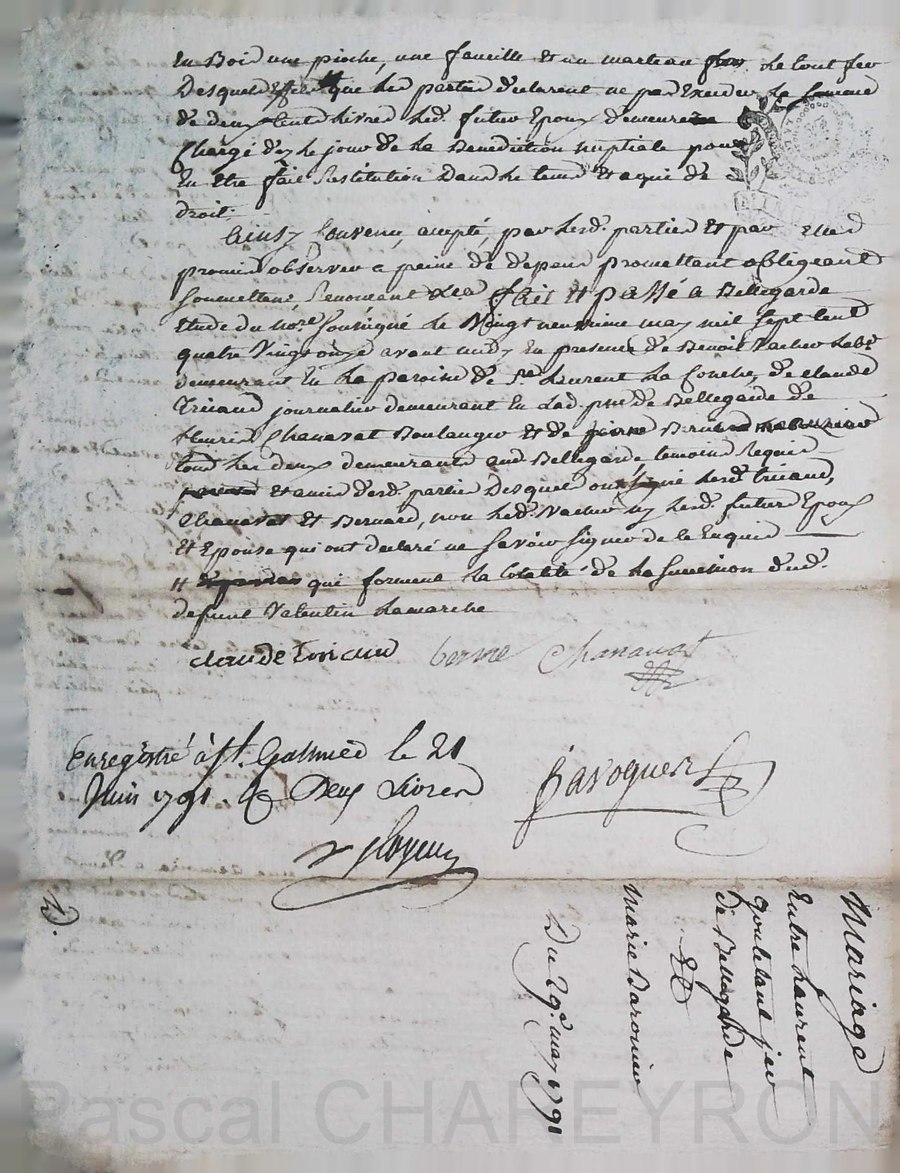 en Bois une pioche, une fauville et un marteau le tout fer
Desquels effets que les parties declarent ne pas Exceder la somme
de deux Cents Livres led. futur Epoux demeurera
Chargé dez le jour de la Benediction nuptiale pour
En Etre fait Restitution Dans le tems et a qui de
droit.
Ainsy Convenu, accepté, par lesd. parties et par elles
promis observer a peine de depens promettant obligeant
soumettant Renoncant &ca fait et passé a Bellegarde
Etude du nore. soussigné le vingt neuvieme may mil sept cent
quatre vingt onze avant midy en presence de Benoit Vacher
demeurant En la paroisse de St. Laurent La Conche, de claude
Tricaud journalier demeurant En lad. psse de Bellegarde de
fleuris Chanavat Boulanger et de
tous les deux demeurants aud Bellegarde temoins Requis
et amis desd. parties Desquels ont signé lesd. Tricaud,
Chanavat et Bernard, non led. Vacher ny lesd. futurs Epoux
et Epouse qui ont declaré ne savoir signer de ce Enquis
# qui forment la totalité de la succession dud.
defunt Valentin Lamarche
claude Tricaud Chanavat
Enregistré à St. Galmier le 21
Juin 1791. Deux Livres
Mariage
Entre Laurent
de Bellegarde
Et
Marie
Du 29e. may 1791
Pascal CHAREYRON